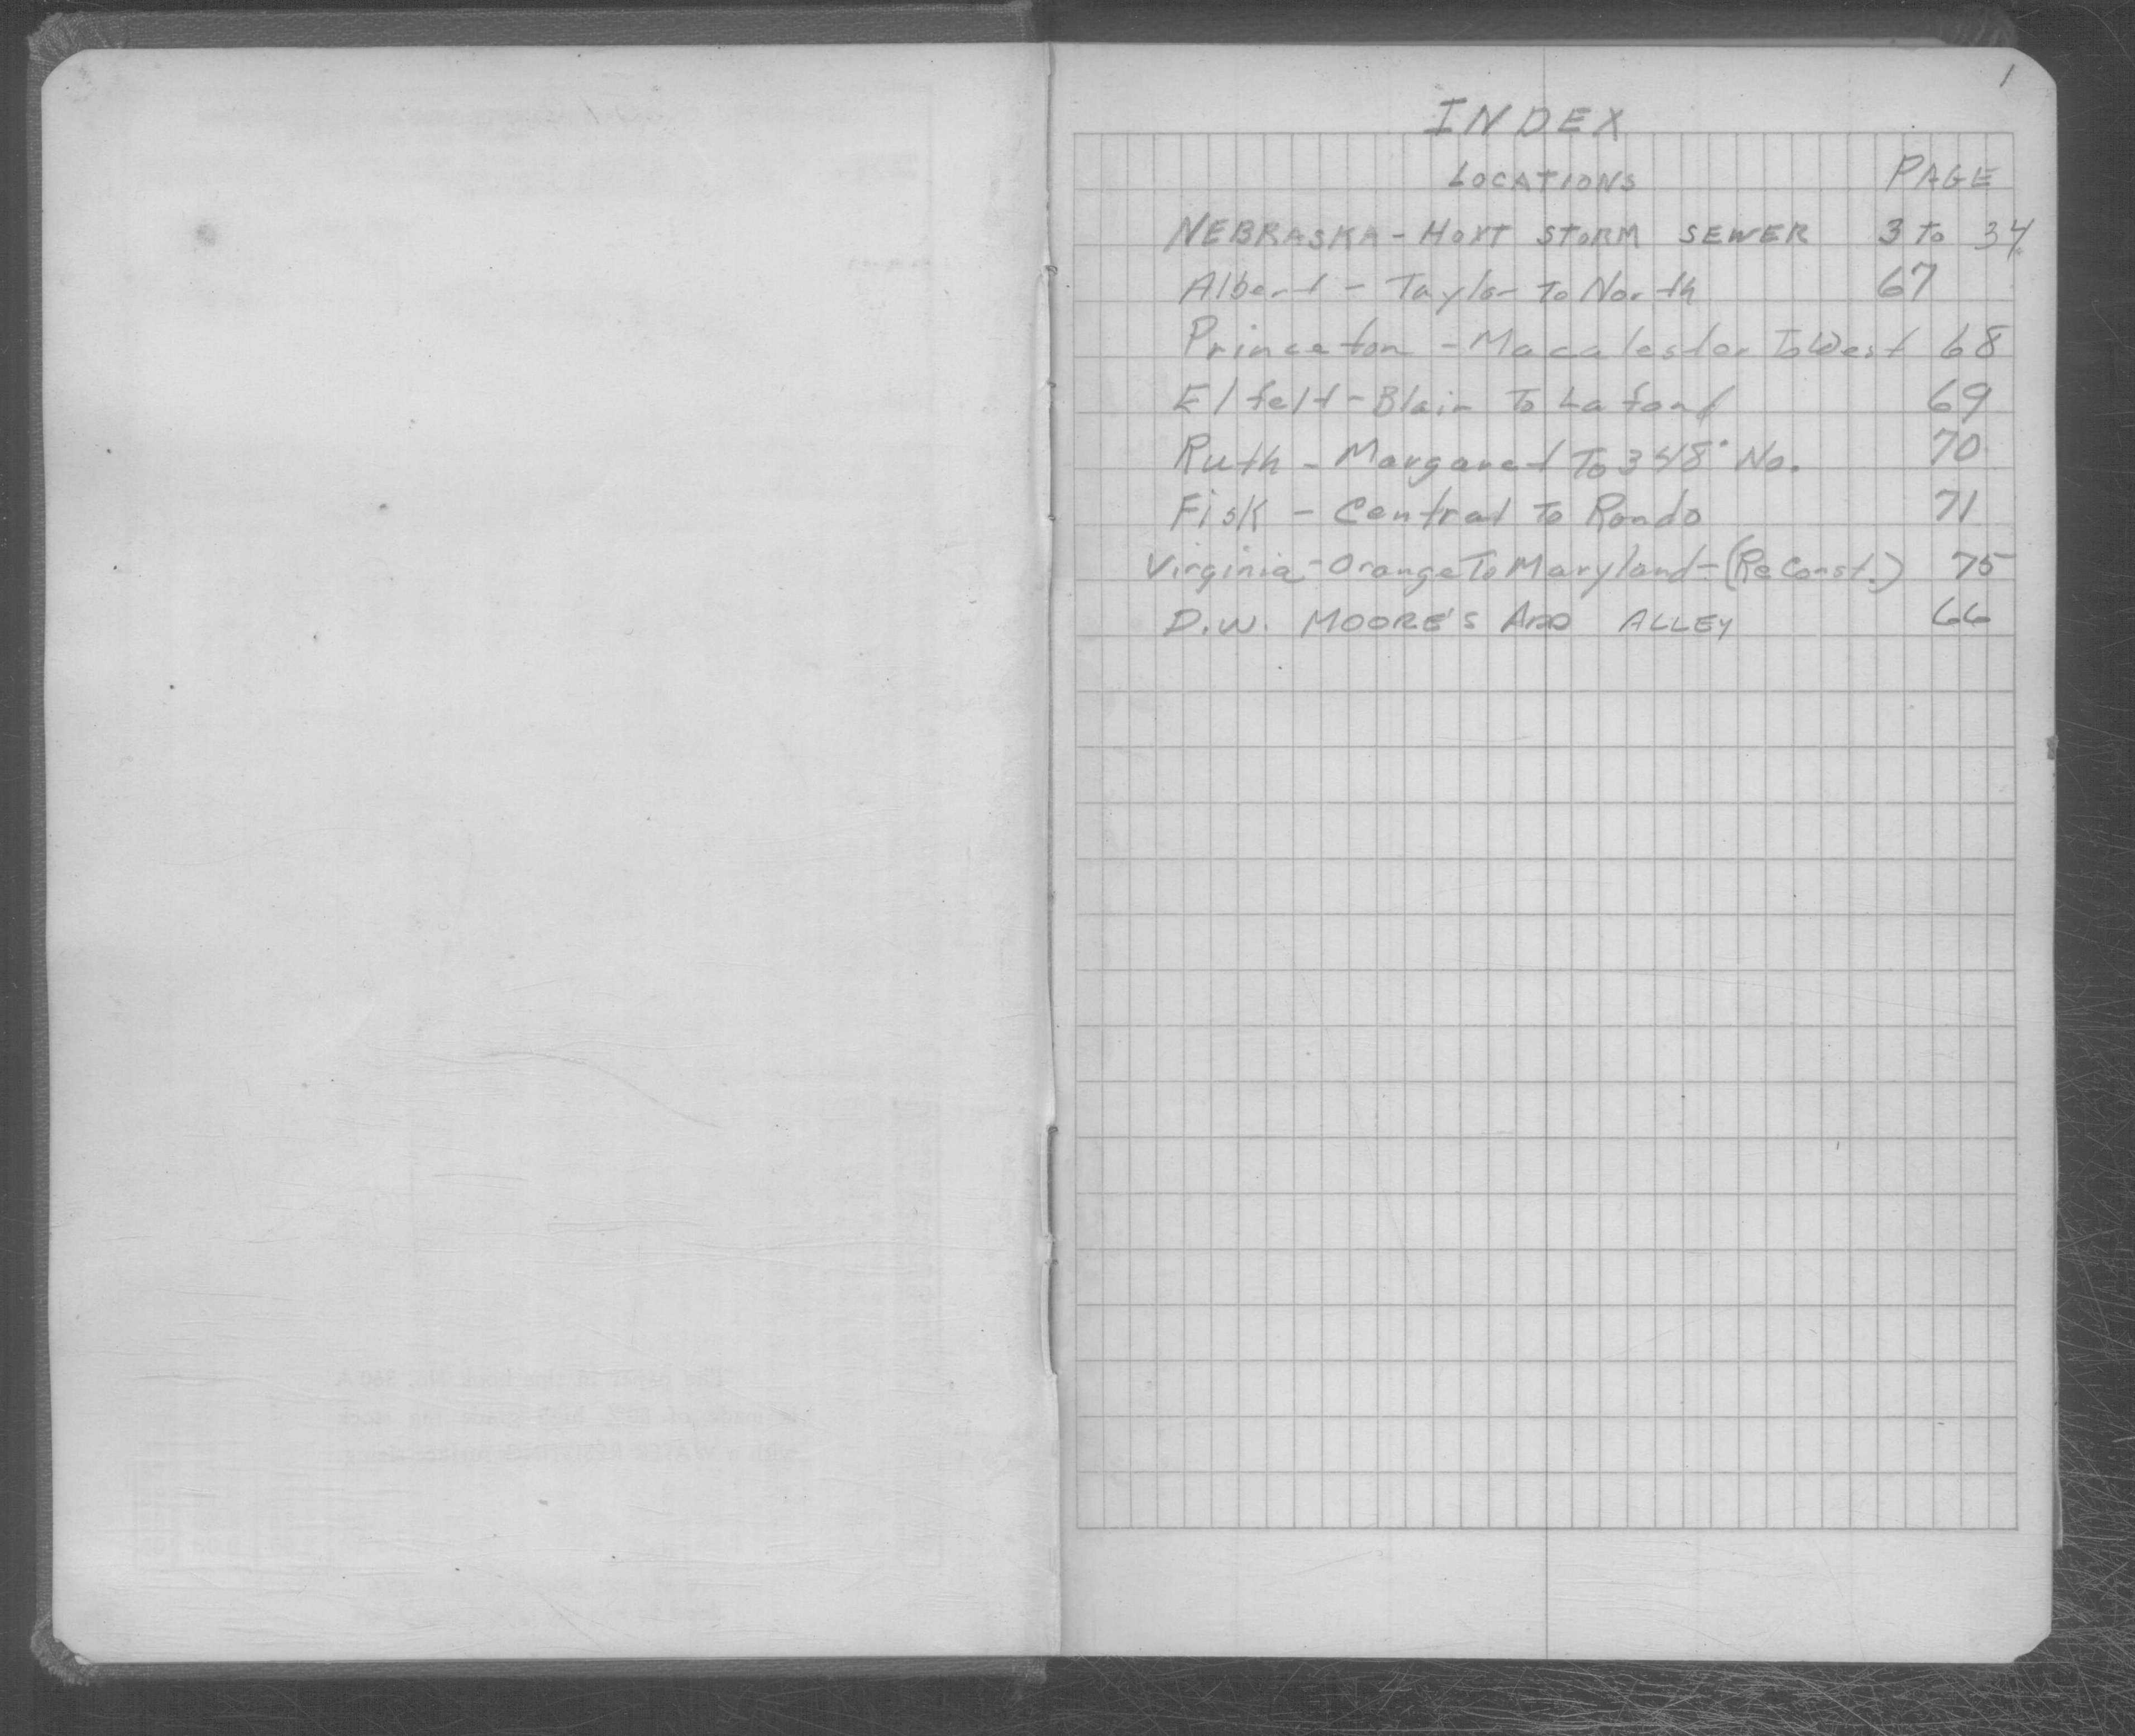 1
INDEX
LOCATIONS PAGE
NEBRASKA - HOYT STORM SEWER 3 To 34
Albert - Taylor To North 67
Princeton - Macalester To West 68
Elfelt - Blair To Lafond 69
Ruth - Margaret To 348' No. 70
Fisk - Central To Rondo 71
Virginia - Orange To Maryland - (ReConst.) 75
D.W. MOORE'S ADD ALLEY 66